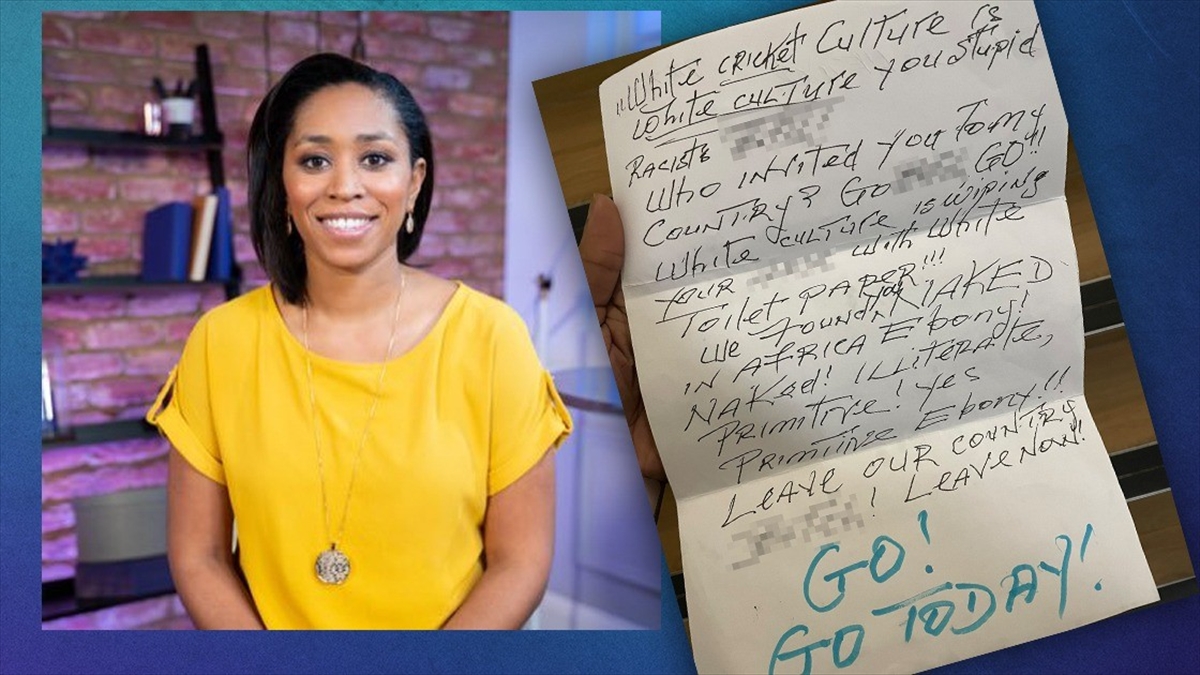 "White CRICKET CuLTuRe is
White CuLTuRe you stupid
RACists
Who iNViTed you To my
CouNTRy? Go GO!!
White CuLTuRe is wiping
your with white
ToiLeT PAPeR!!!
we Found you NAKED
iN AFRiCA Ebony!
NAKed! iLLiTeRATe,
PRiMiTive! yes
PRiMiTive Ebony!!
LeAve OUR COUNTRY
! LeAve Now!
GO!
GO TODAY!